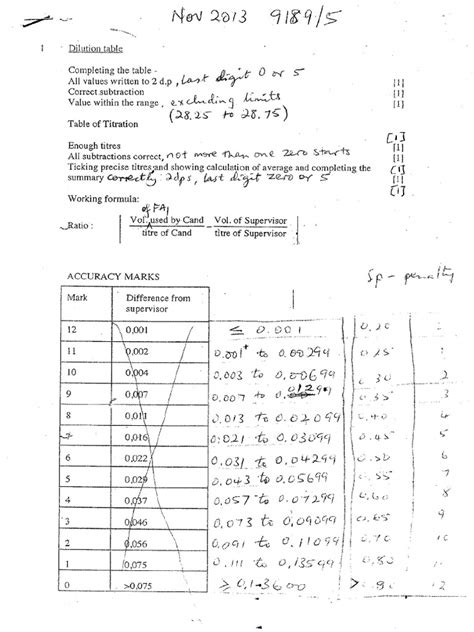 Nov 2013 9189/5
1 Dilution table
Completing the table -
All values written to 2 d.p, Last digit 0 or 5 [1]
Correct subtraction [1]
Value within the range, excluding limits [1]
(28.25 to 28.75)
Table of Titration
[1]
Enough titres [1]
All subtractions correct, not more than one zero starts [1]
Ticking precise titres and showing calculation of average and completing the [1]
summary correctly: 2dps, last digit zero or 5 [1]
Working formula:
of FA1
Ratio: | Vol. used by Cand / titre of Cand - Vol. of Supervisor / titre of Supervisor |
ACCURACY MARKS Sp - penalty
Mark Difference from supervisor
12 0,001 ≤ 0.001 0.20
11 0,002 0.001+ to 0.00299 0.25 1
10 0,004 0.003 to 0,00699 0.30 2
9 0,007 0.007 to 0.01299 0.35 3
8 0,011 0.013 to 0.02099 0.40 4
7 0,016 0.021 to 0.03099 0.45 5
6 0,022 0.031 to 0.04299 0.50 6
5 0,029 0.043 to 0.05699 0.55 7
4 0,037 0.057 to 0.07299 0.60 8
3 0,046 0.073 to 0,09099 0.65 9
2 0,056 0.091 to 0.11099 0.70 10
1 0,075 0.111 to 0,13599 0.80 11
0 >0,075 ≥ 0.13600 >.80 12